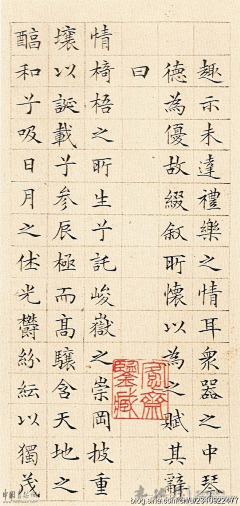 趣亦未達禮樂之情耳衆器之中琴
德為優故綴叙所懷以為之賦其辭
曰
情椅梧之所生兮託峻嶽之崇岡披重
壤以誕載兮參辰極而高驤含天地之
醕和兮吸日月之休光鬱紛紜以獨茂